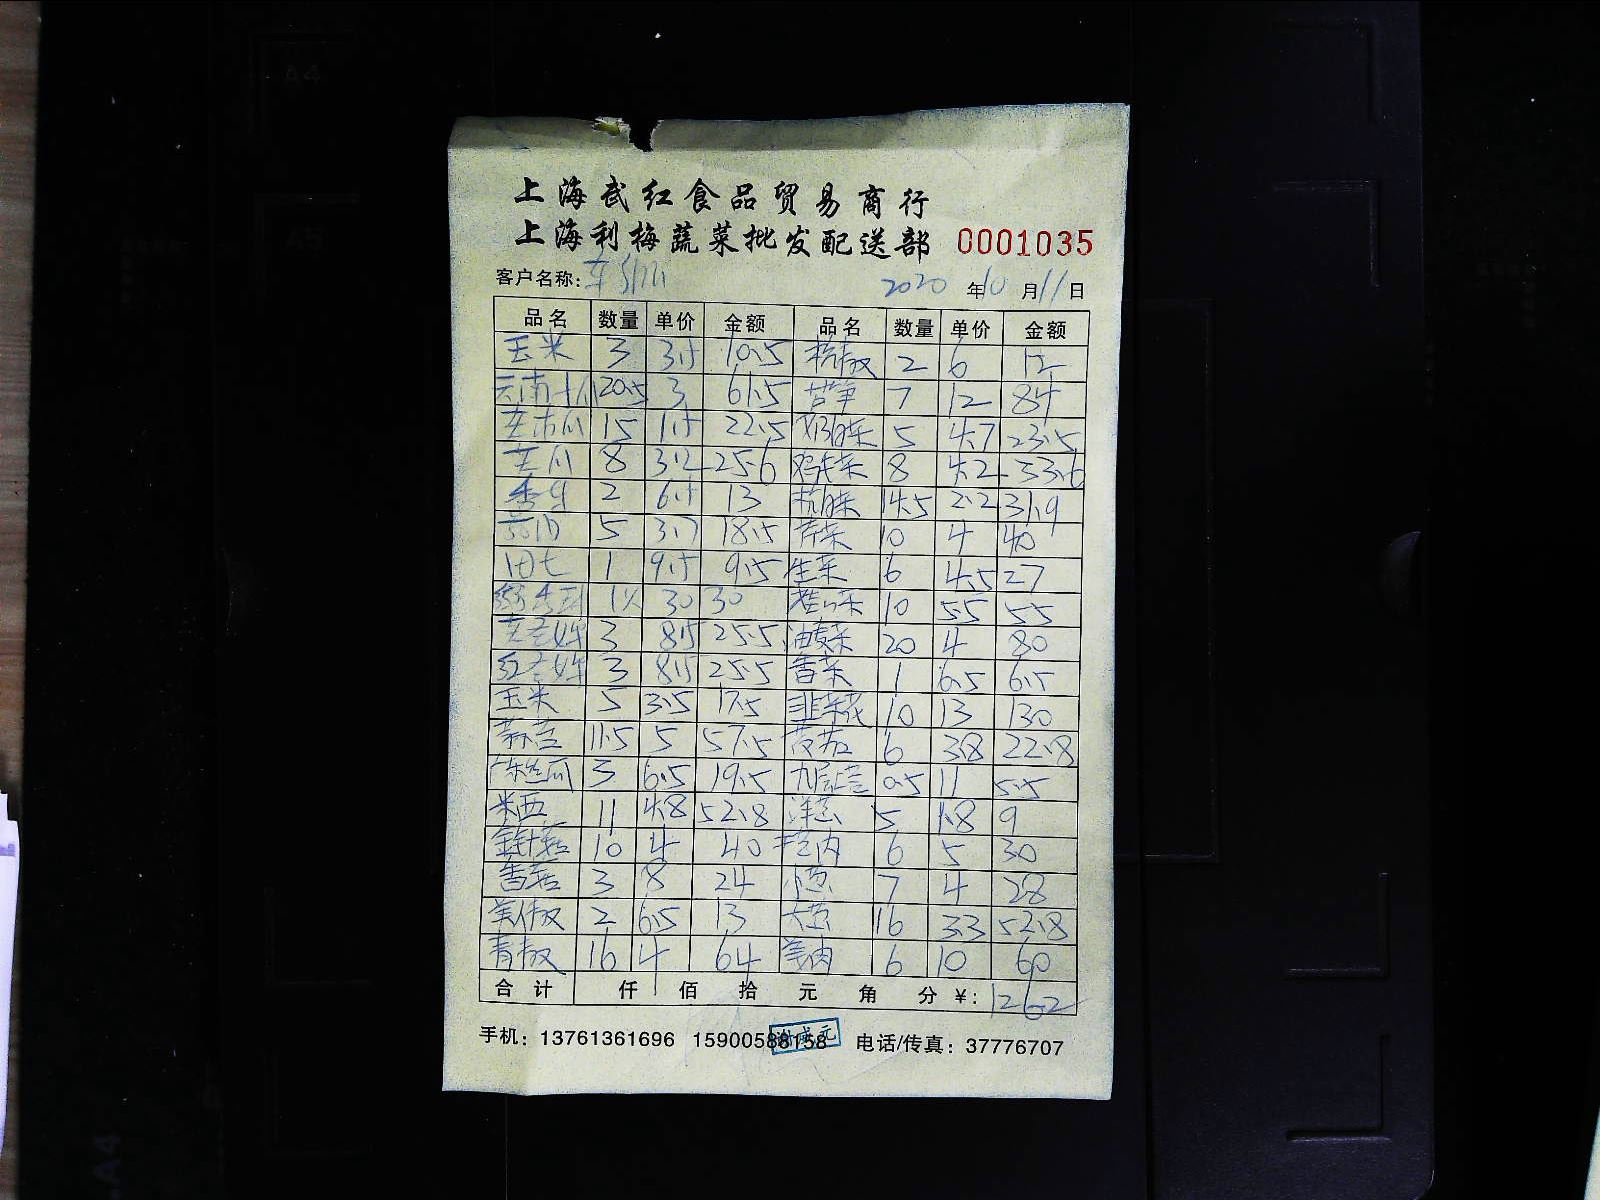 上海武红食品贸易商行
上海利梅蔬菜批发配送部 0001035
客户名称: 2020 年 10 月 11 日
品名 数量 单价 金额 品名 数量 单价 金额
玉米 3 3.5 10.5 杭椒 2 6 12
云南 20.5 3 61.5 茭笋 7 12 84
15 1.5 22.5 奶白菜 5 4.7 23.5
8 3.2 25.6 鸡毛菜 8 4.2 33.6
2 6.5 13 杭白菜 14.5 2.2 31.9
5 3.7 18.5 芹菜 10 4 40
1 9.5 9.5 生菜 6 4.5 27
1 30 30 10 5.5 55
3 8.5 25.5 油麦菜 20 4 80
3 8.5 25.5 香菜 1 6.5 6.5
玉米 5 3.5 17.5 韭菜花 10 13 130
蒜苔 11.5 5 57.5 6 3.8 22.8
丝瓜 3 6.5 19.5 九层 0.5 11 5.5
米西 11 4.8 52.8 洋葱 5 1.8 9
金针菇 10 4 40 6 5 30
香菇 3 8 24 小葱 7 4 28
美人椒 2 6.5 13 大葱 16 3.3 52.8
青椒 16 4 64 姜肉 6 10 60
合计 仟 佰 拾 元 角 分 ¥: 1262
手机: 13761361696 15900588158 电话/传真: 37776707